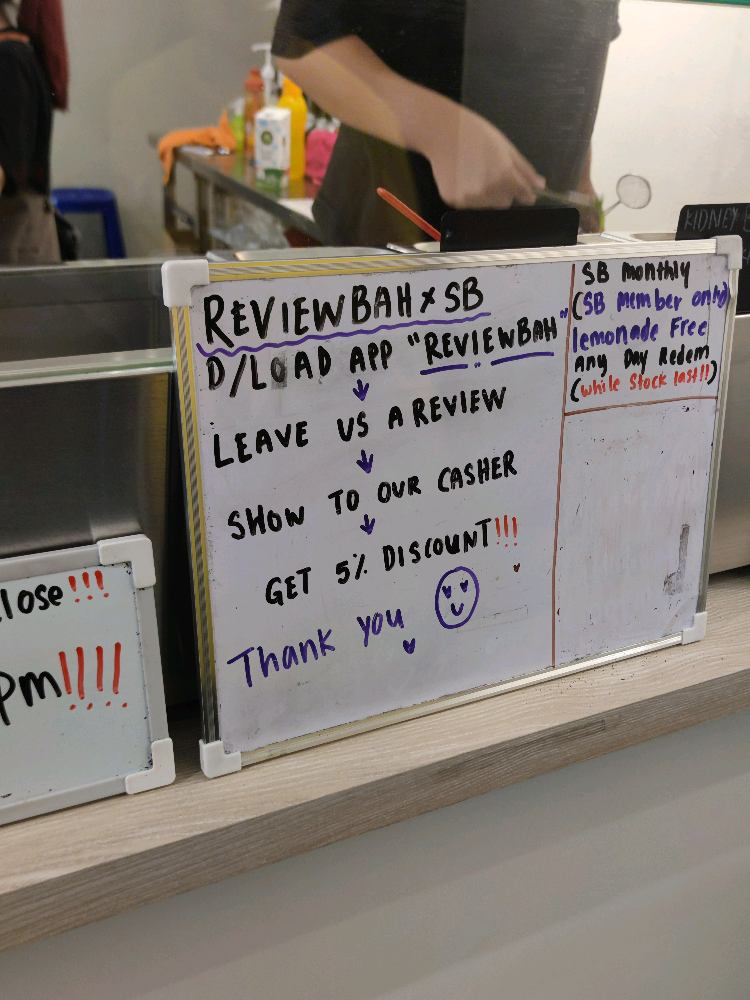 REVIEWBAH x SB
D/LOAD APP "REVIEWBAH"
LEAVE US A REVIEW
SHOW TO OUR CASHER
GET 5% DISCOUNT!!!
Thank you
SB monthly
(SB member only)
lemonade Free
Any Day Redem
(while Stock last!!)
lose!!!
pm!!!!
KIDNEY